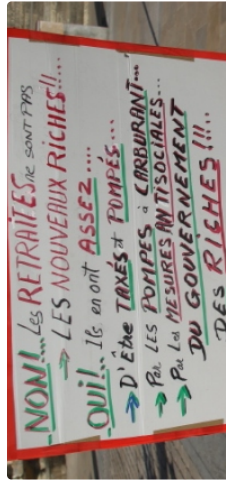 NON!.... Les RETRAITÉS ne SONT PAS
→ LES NOUVEAUX RICHES!!...
OUI!.. Ils en ont ASSEZ....
→ D'Être TAXÉS et POMPÉS...
→ Par LES POMPES à CARBURANT...
→ Par Les MESURES ANTISOCIALES...
DU GOUVERNEMENT
DES RICHES!!!..